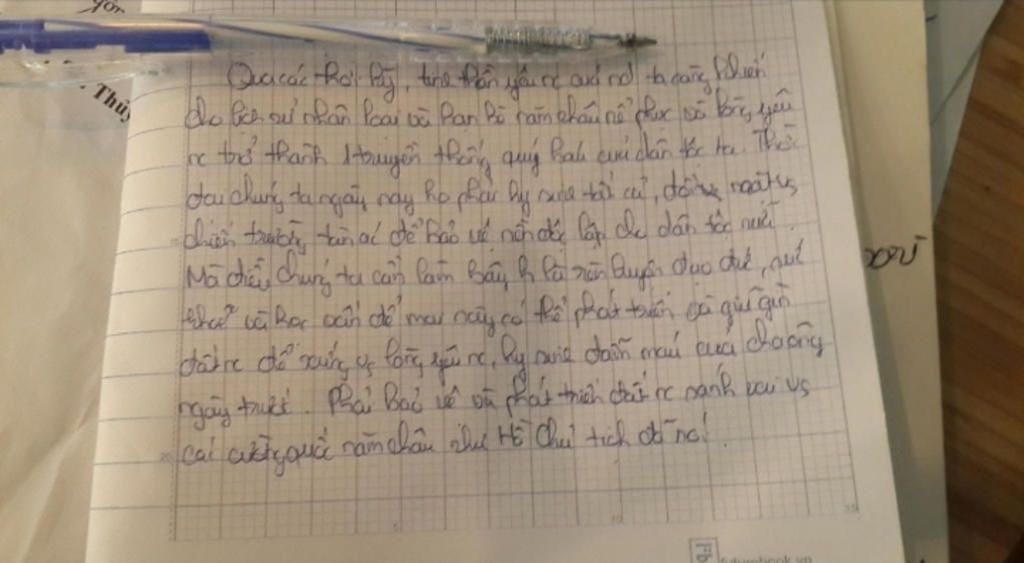 Qua các thời kỳ, tinh thần yêu nc của nd ta càng khiến
cho lịch sử nhân loại và bạn bè năm châu nể phục và lòng yêu
nc trở thành 1 truyền thống quý báu của dân tộc ta. Thời
đại chúng ta ngày nay ko phải hy sinh tất cả, đối mặt vs
chiến trường tàn ác để bảo vệ nền độc lập cho dân tộc nữa.
Mà điều chúng ta cần làm bây h là rèn luyện đạo đức, sức
khoẻ và học vấn để mai này có thể phát triển và giữ gìn
đất nc để xứng vs lòng yêu nc, hy sinh dòng máu của cha ông
ngày trước. Phải bảo vệ và phát triển đất nc sánh vai vs
các cường quốc năm châu như Hồ Chủ tịch đã nói.
Thủy